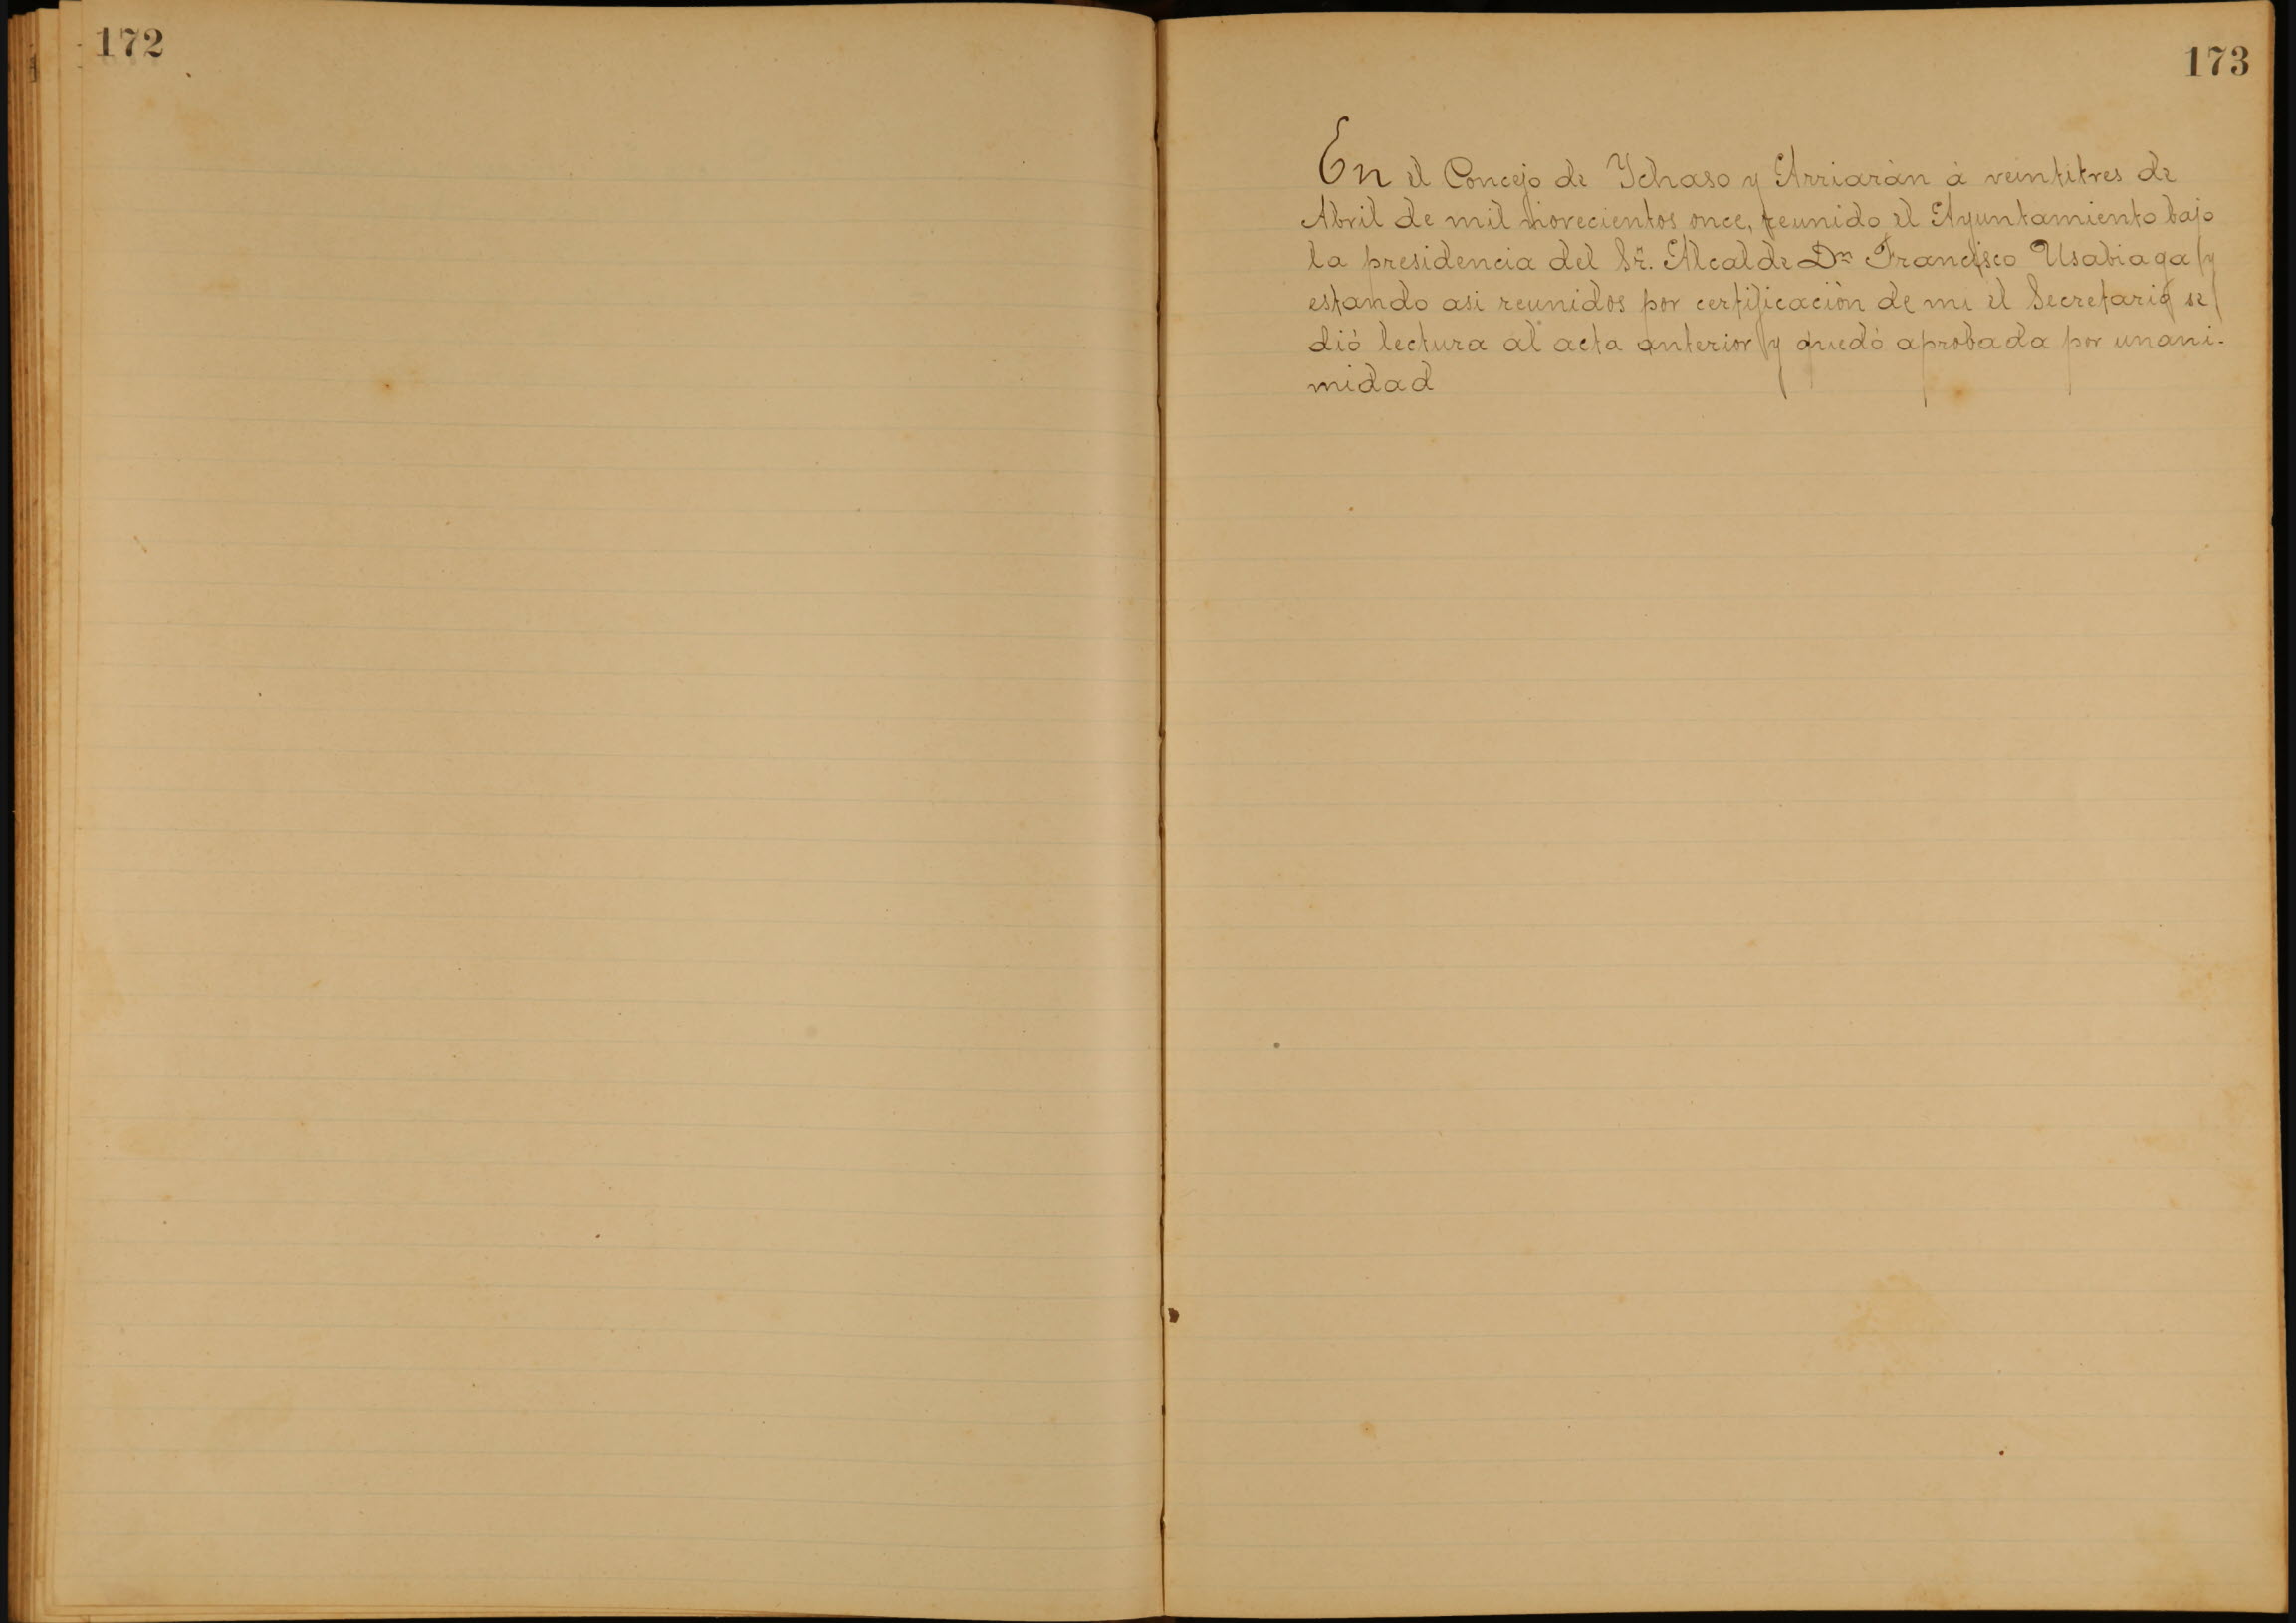 172
173
En el Concejo de Ychaso y Arriarán á veintitres de
Abril de mil novecientos once, reunido el Ayuntamiento bajo
la presidencia del Sr. Alcalde Dn Francisco Usabiaga y
estando asi reunidos por certificación de mi el Secretario se
dió lectura al acta anterior y quedó aprobada por unani-
midad